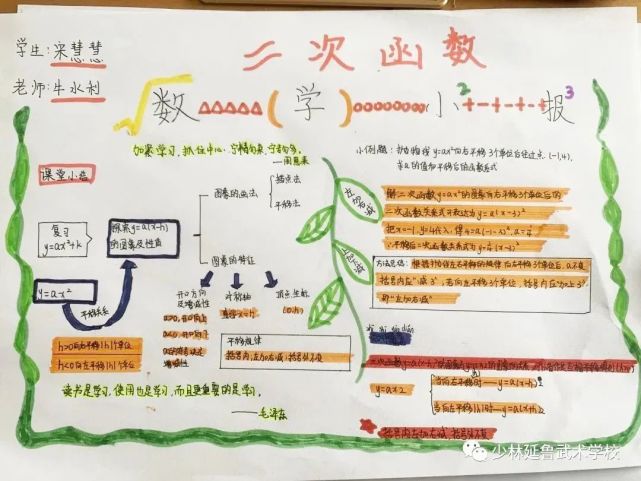 学生:宋慧慧
老师:牛水利
二次函数
数学小报
2
3
如果学习,抓住中心,宁精勿杂,宁专勿多。
—周恩来
课堂小结
复习
y=ax²+k
探索y=a(x-h)²
的图象及性质
y=ax²
平移关系
h>0向右平移|h|个单位
h<0向左平移|h|个单位
图象的画法
描点法
平移法
图象的特征
开口方向
及增减性
对称轴
直线x=h
顶点坐标
(h,0)
平移规律
括号内,左加右减,括号外不变
读书是学习,使用也是学习,而且是更重要的是学习。
——毛泽东
左加右减
小例题:抛物线y=ax²向右平移3个单位后经过点(-1,4),
求a的值和平移后的函数关系式
解二次函数y=ax²的图象向右平移3个单位后的
二次函数关系式可表达为y=a(x-3)²
把x=-1,y=4代入,得4=a(-1-3)²,a=¼
∴平移后二次函数关系式为y=¼(x-3)²
方法总结:根据抛物线左右平移的规律,向右平移3个单位后,a不变
括号内应"减3";若向左平移3个单位,括号内应"加上3"
即"左加右减"
y=ax2
当向右平移|h|时——y=a(x-h)2
当向左平移|h|时——y=a(x+h)2
括号内左加右减,括号外不变
少林延鲁武术学校